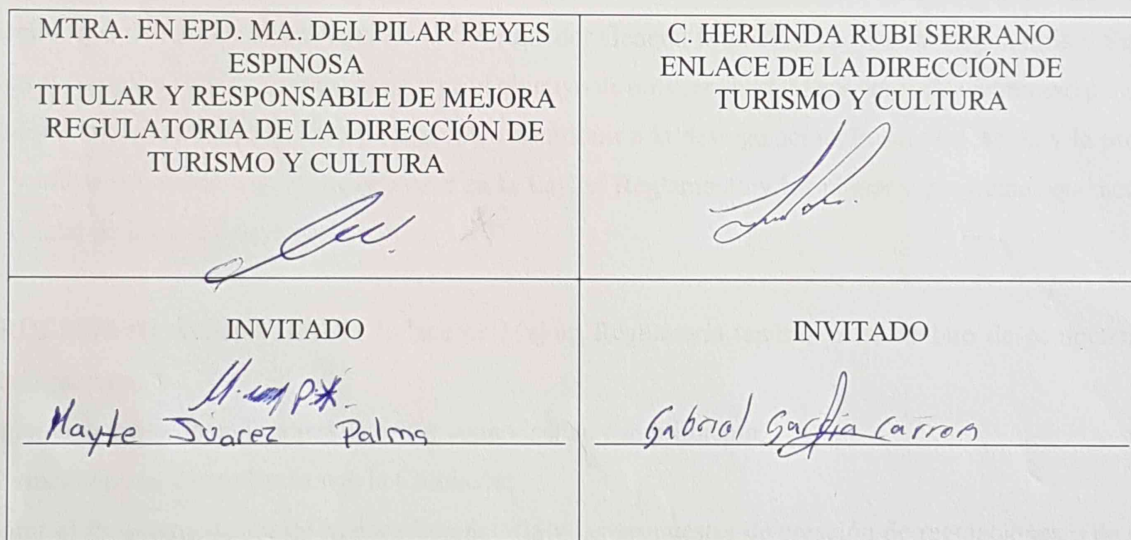 MTRA. EN EPD. MA. DEL PILAR REYES
ESPINOSA
TITULAR Y RESPONSABLE DE MEJORA
REGULATORIA DE LA DIRECCIÓN DE
TURISMO Y CULTURA
C. HERLINDA RUBI SERRANO
ENLACE DE LA DIRECCIÓN DE
TURISMO Y CULTURA
INVITADO
Mayte Juarez Palma
INVITADO
Gabriel García